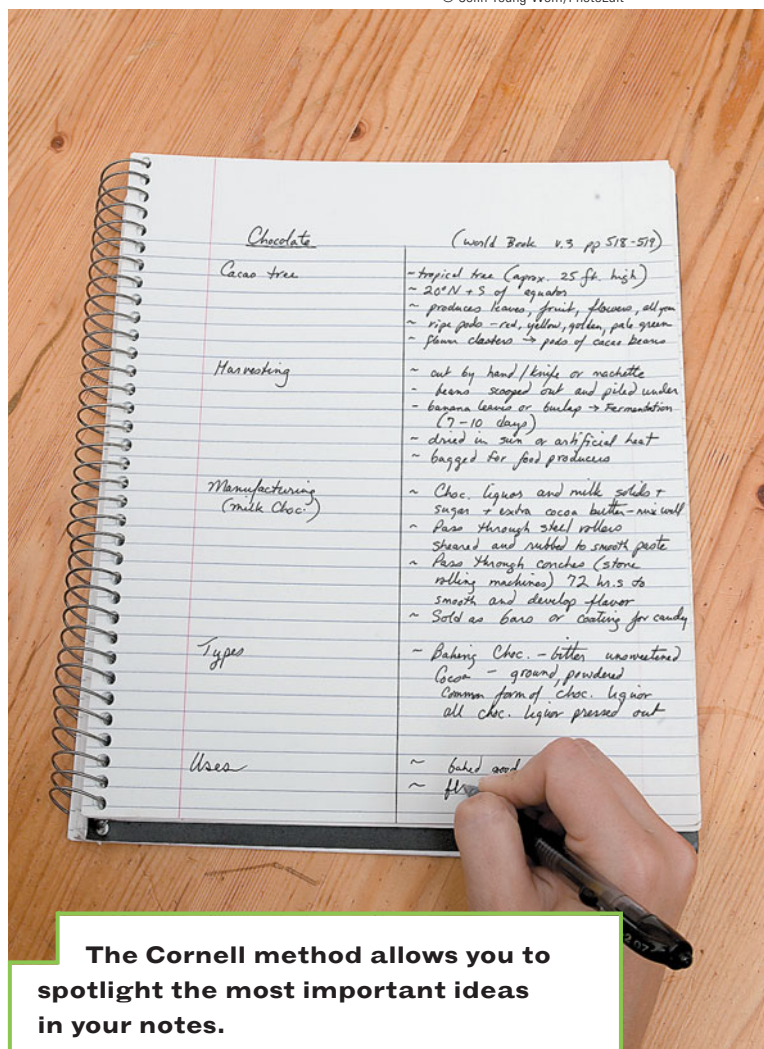 © Young-Wolff/PhotoEdit
Chocolate
(World Book v.3 pp 518-519)
Cacao tree
- tropical tree (aprox. 25 ft. high)
~ 20°N + S of equator
~ produces leaves, fruit, flowers, all year
~ ripe pods - red, yellow, golden, pale green
~ clusters → pods of cacao beans
Harvesting
~ cut by hand/knife or machette
- beans scooped out and piled under
- banana leaves or burlap → Fermentation
(7-10 days)
~ dried in sun or artificial heat
~ bagged for food producers
Manufacturing
(milk Choc.)
~ Choc. liquor and milk solids +
sugar + extra cocoa butter - mix well
~ Pass through steel rollers
sheared and rubbed to smooth paste
~ Pass through conches (stone
rolling machines) 72 hr.s to
smooth and develop flavor
~ Sold as bars or coating for candy
Types
~ Baking Choc. - bitter unsweetened
Cocoa - ground, powdered
Common form of choc. liquor
all choc. liquor pressed out
Uses
~ baked good
~ fl
The Cornell method allows you to
spotlight the most important ideas
in your notes.